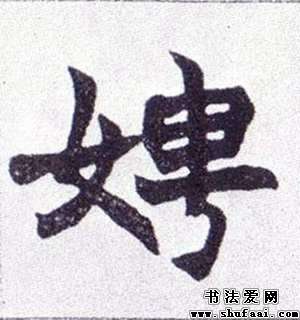 娉
书法爱网
www.shufaai.com